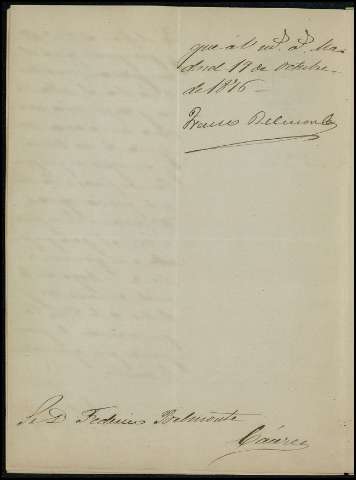 que á V. m.s a.s Ma-
drid 19 de Octubre
de 1876 -
Franco Belmonte
Sr D. Federico Belmonte
Cáceres